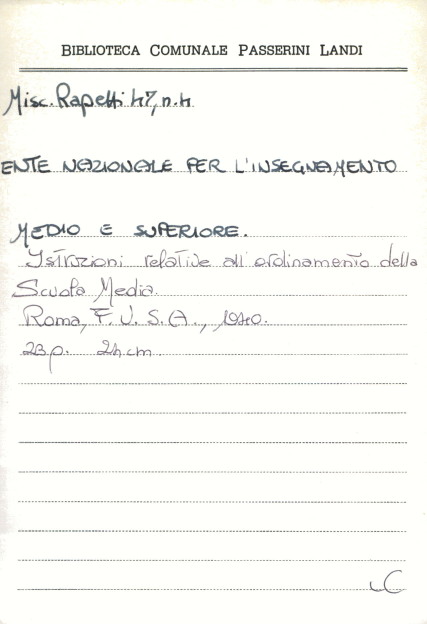 BIBLIOTECA COMUNALE PASSERINI LANDI
Misc. Rapetti 47, n. 4
ENTE NAZIONALE PER L'INSEGNAMENTO
MEDIO E SUPERIORE.
Istruzioni relative all'ordinamento della
Scuola Media.
Roma, F. U. S. A., 1940.
23 p. 24 cm